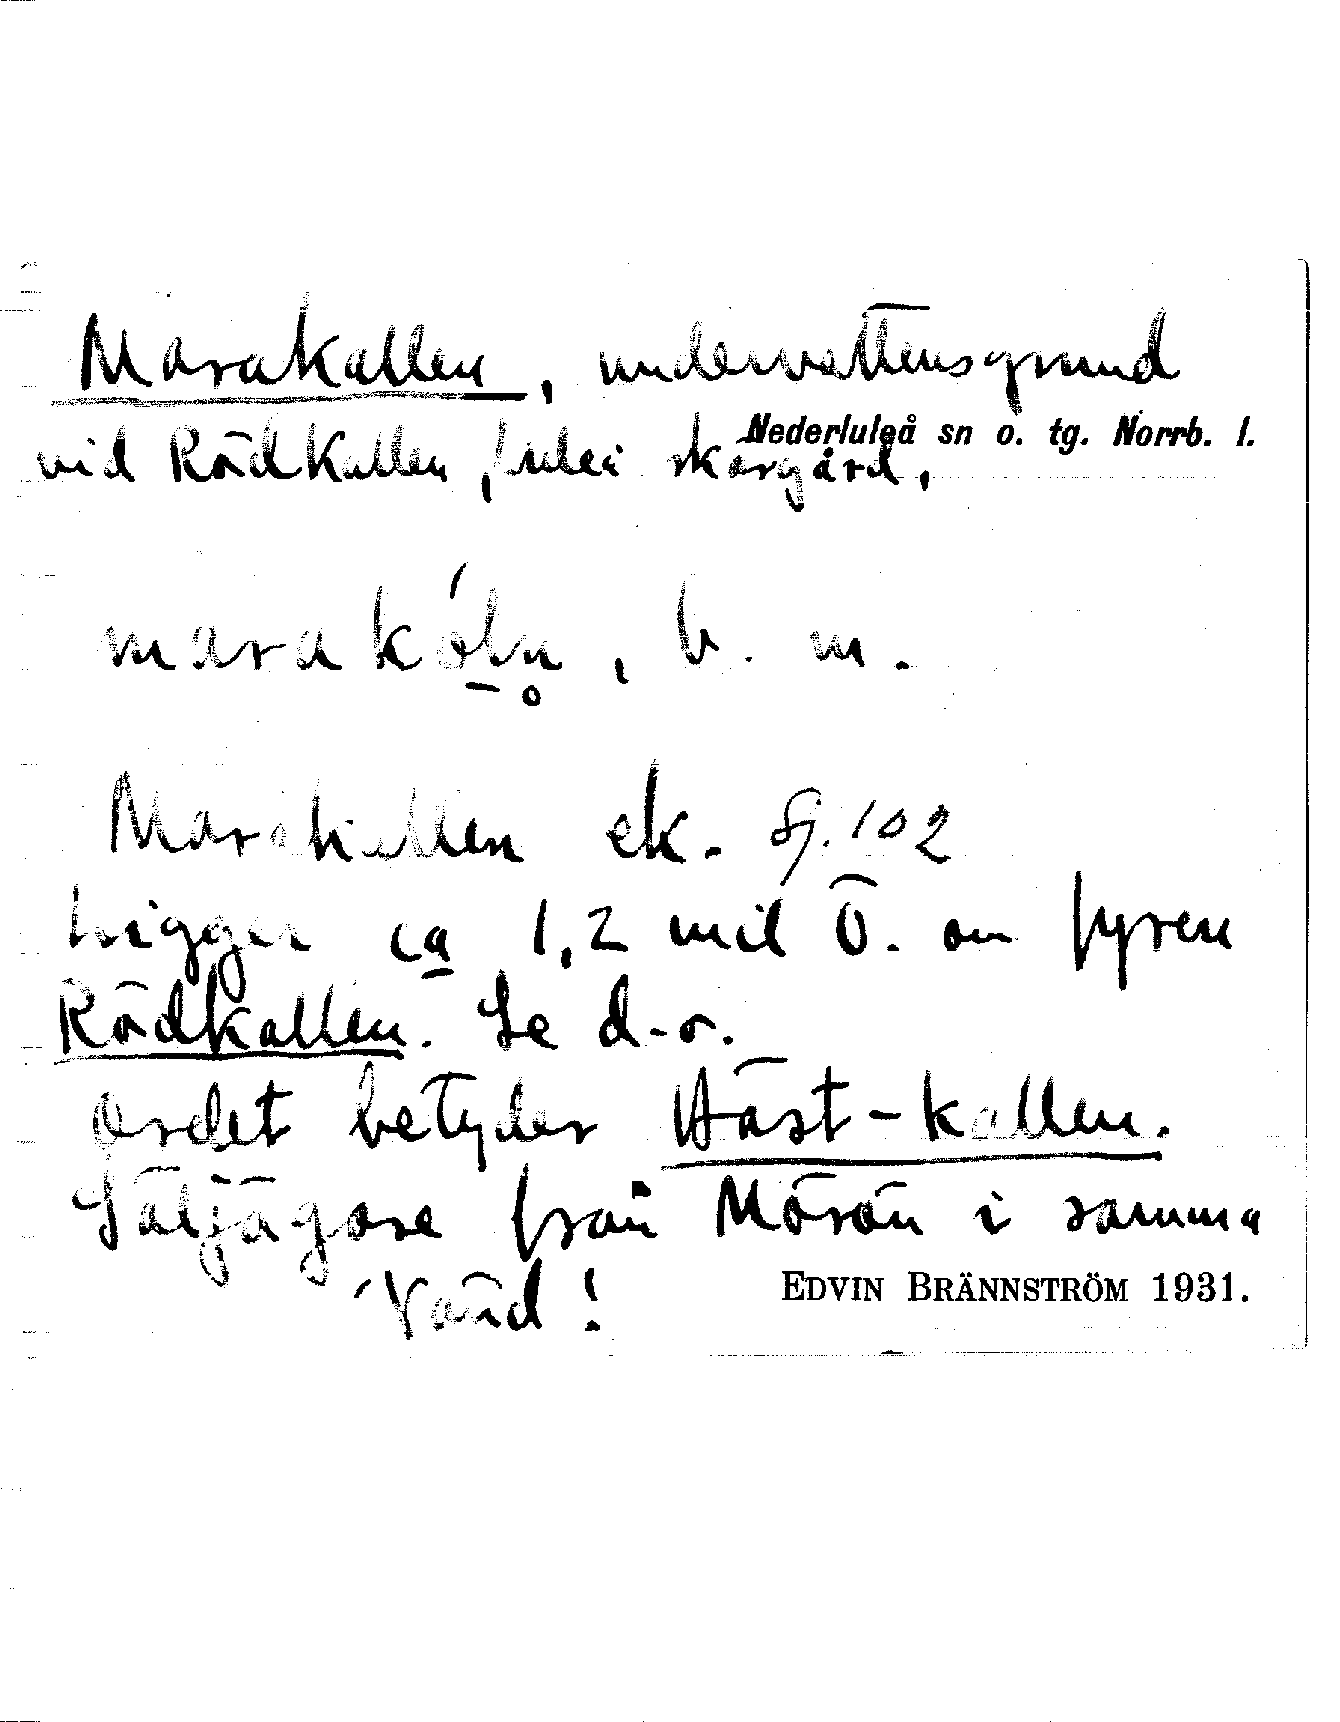 Marakallen, undervattensgrund
Nederluleå sn o. tg. Norrb. l.
vid Rödkallen, Luleå skärgård.
marakóln̥, b. m.
Marakallen ek. Sj. 102
Ligger ca 1,2 mil Ö. om fyren
Rödkallen. Se d-o.
Ordet betyder Häst-kallen.
Säljägare från Mörön i samma
Vänd!
EDVIN BRÄNNSTRÖM 1931.